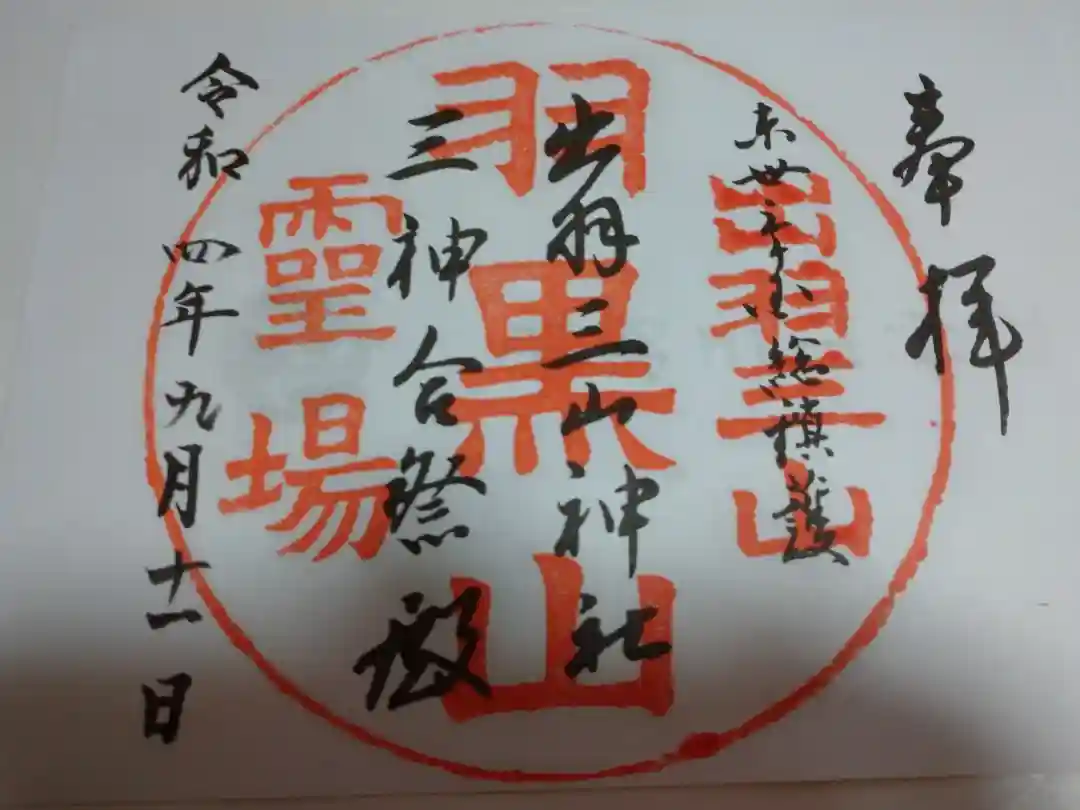 奉拝
東卅三ヶ国総鎮護
出羽三山神社
三神合祭殿
令和四年九月十一日
出羽三山
羽黒山
靈場